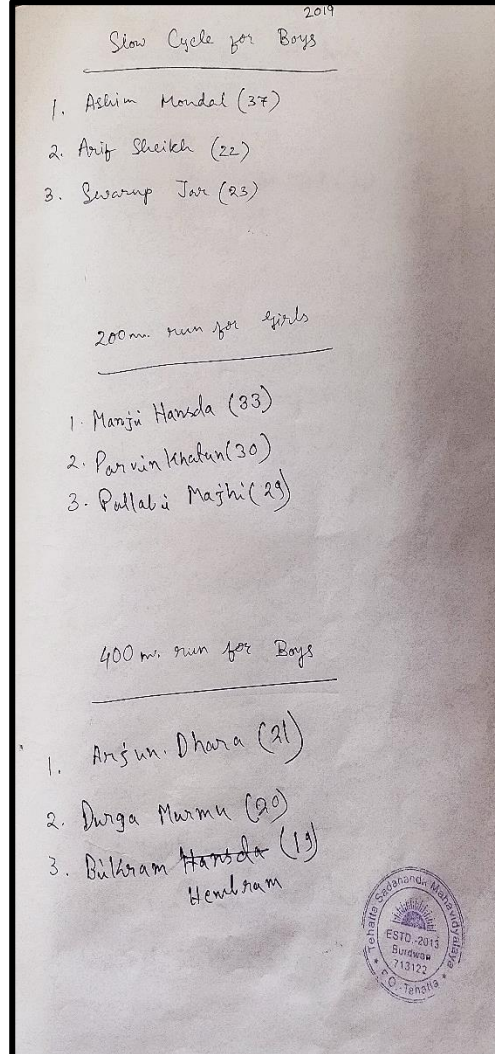 2019
Slow Cycle for Boys
1. Ashim Mondal (37)
2. Arif Sheikh (22)
3. Swarup Jar (23)
200 m. run for girls
1. Manju Hansda (33)
2. Parvin Khatun (30)
3. Pallabi Majhi (29)
400 m. run for Boys
1. Arjun. Dhara (21)
2. Durga Murmu (20)
3. Bikram Hansda (19)
Hembram
Tehatta Sadananda Mahavidyalaya
ESTD.-2013
Burdwan
713122
P.O.-Tehatta